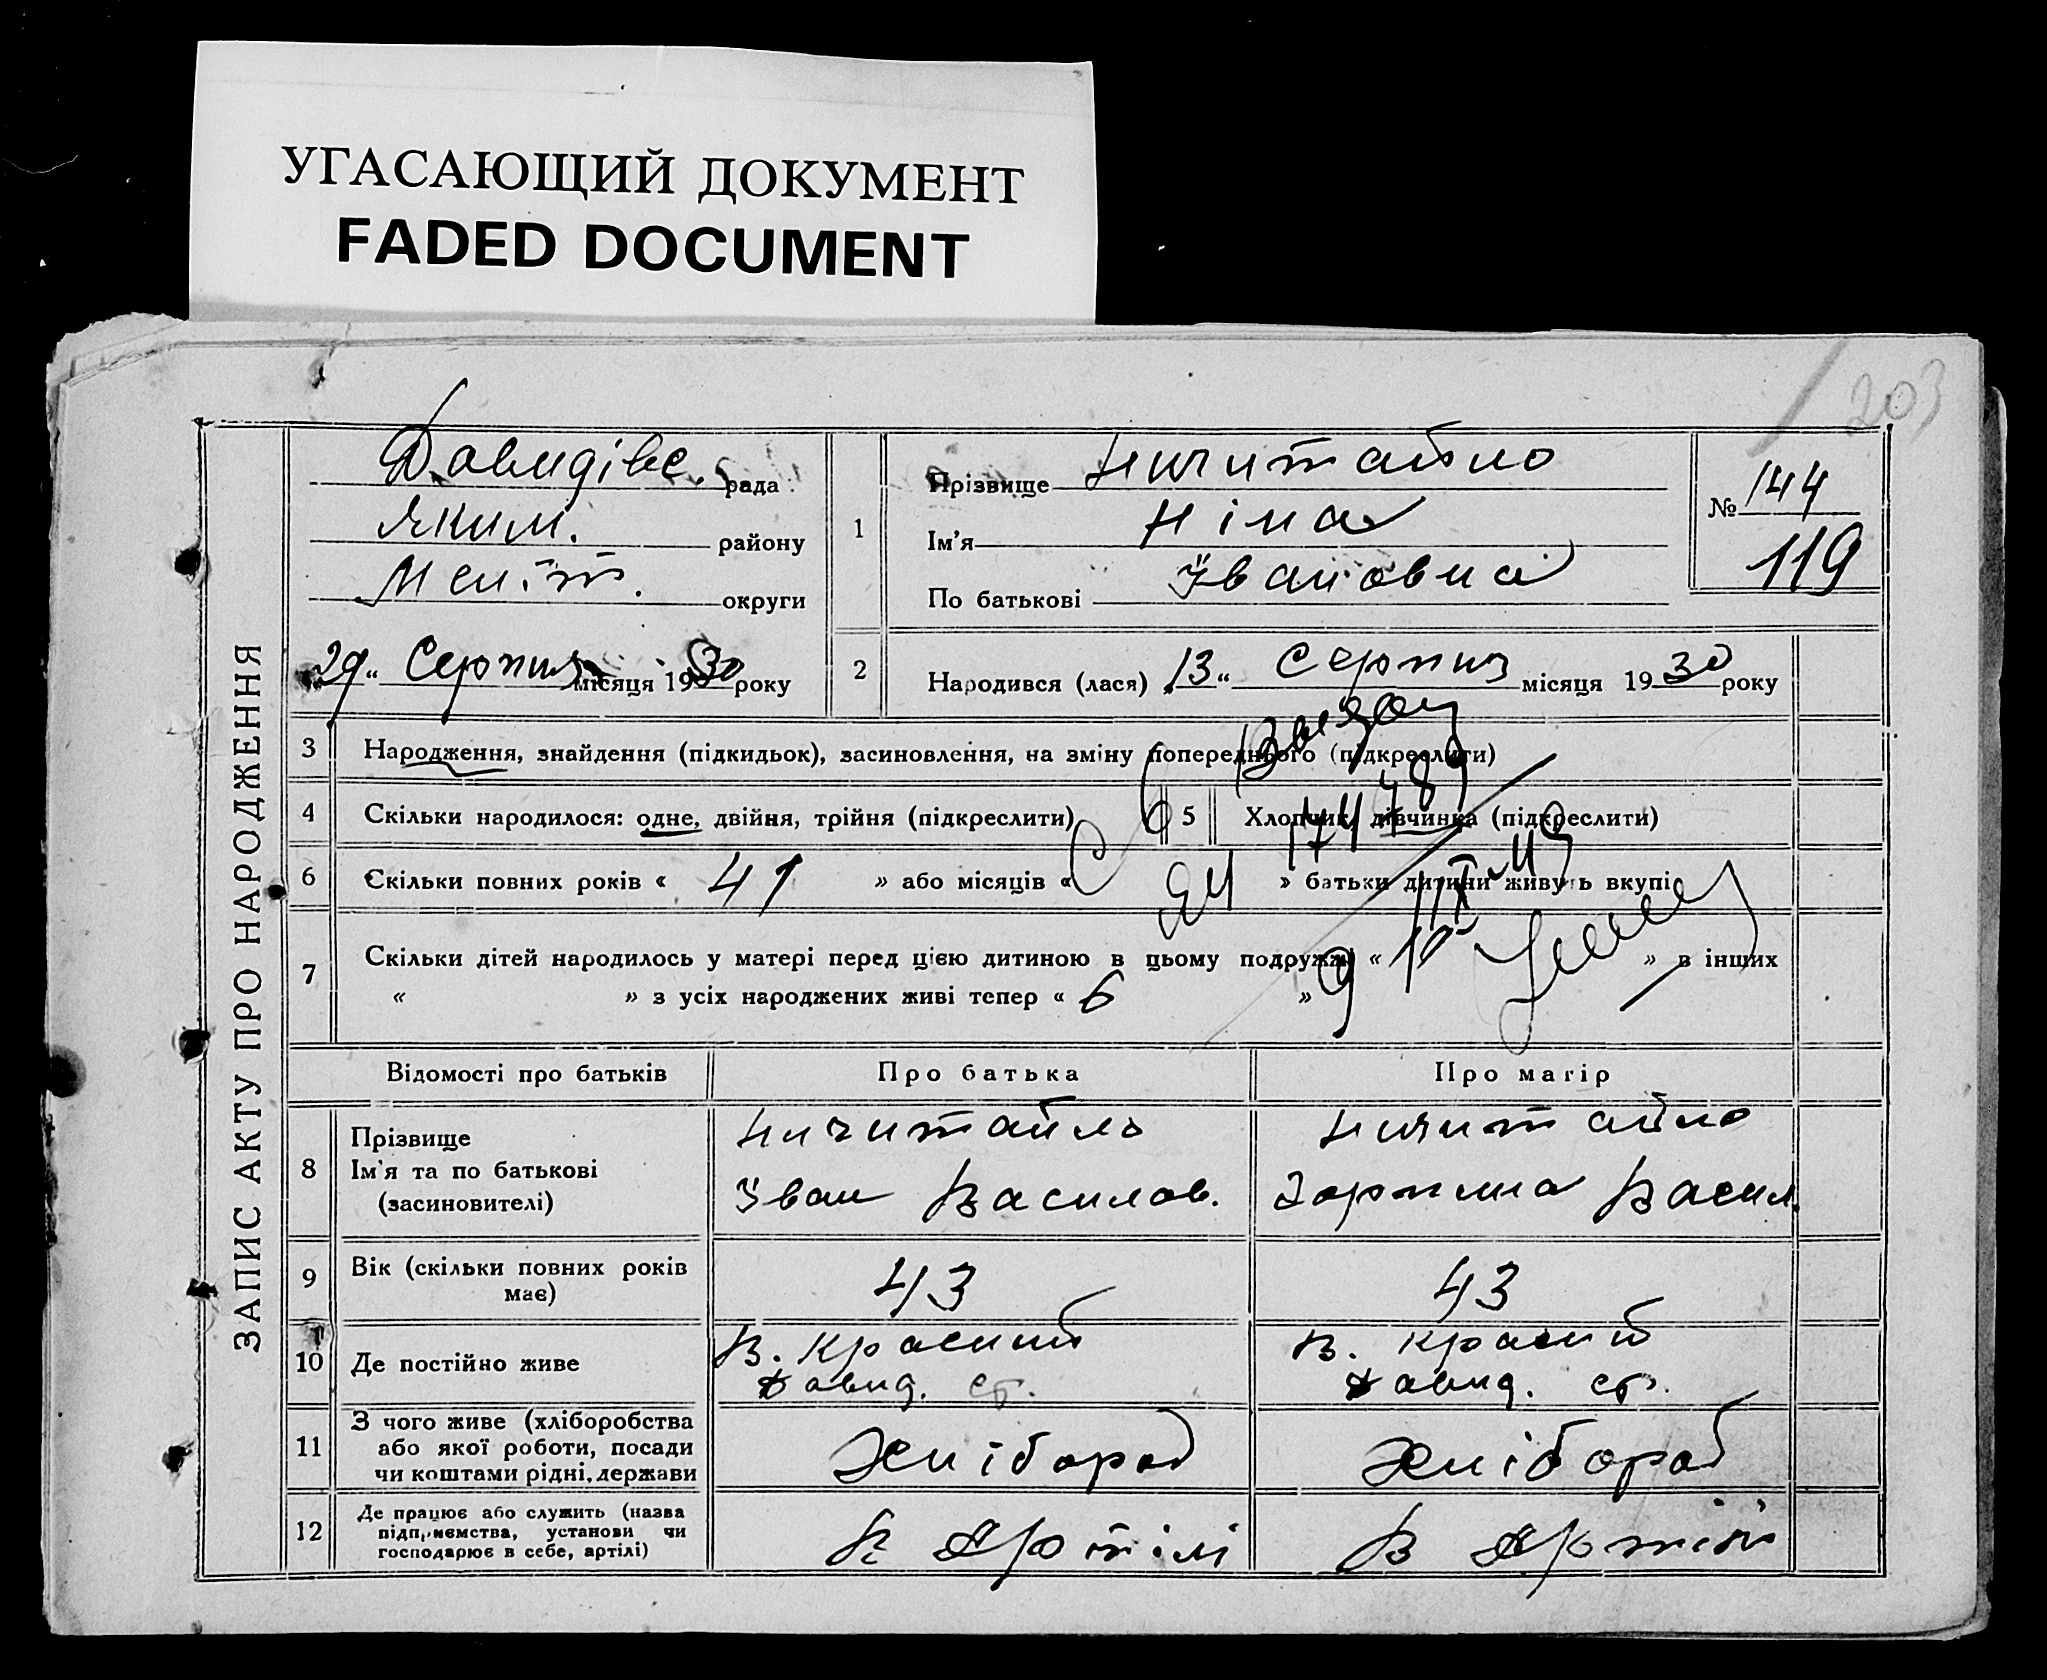 УГАСАЮЩИЙ ДОКУМЕНТ
FADED DOCUMENT
203
ЗАПИС АКТУ ПРО НАРОДЖЕННЯ
Давидівс. рада
Яким. району
Меліт. округи
„29“ Серпня місяця 1930 року
1
Прізвище Ничитайло
Ім'я Ніна
По батькові Івановна
№ 144
119
2 Народився (лася) „13“ Серпня місяця 1930 року
3 Народження, знайдення (підкидьок), засиновлення, на зміну попереднього (підкреслити)
4 Скільки народилося: одне, двійня, трійня (підкреслити)
5 Хлопчик, дівчинка (підкреслити)
6 Скільки повних років « » або місяців « » батьки дитини живуть вкупі
7 Скільки дітей народилось у матері перед цією дитиною в цьому подружжі « » в інших
« » з усіх народжених живі тепер « 6 »
Відомості про батьків Про батька Про матір
8 Прізвище Ничитайло Ничитайло
Ім'я та по батькові Іван Василов. Горпина Васил.
(засиновителі)
9 Вік (скільки повних років має) 43 43
10 Де постійно живе В. Красний В. Красний
Давид. ст. Давид. ст.
11 З чого живе (хліборобства
або якої роботи, посади Хлібороб Хлібороб
чи коштами рідні, держави
12 Де працює або служить (назва
підприємства, установи чи В Артілі В Артілі
господарює в себе, артілі)